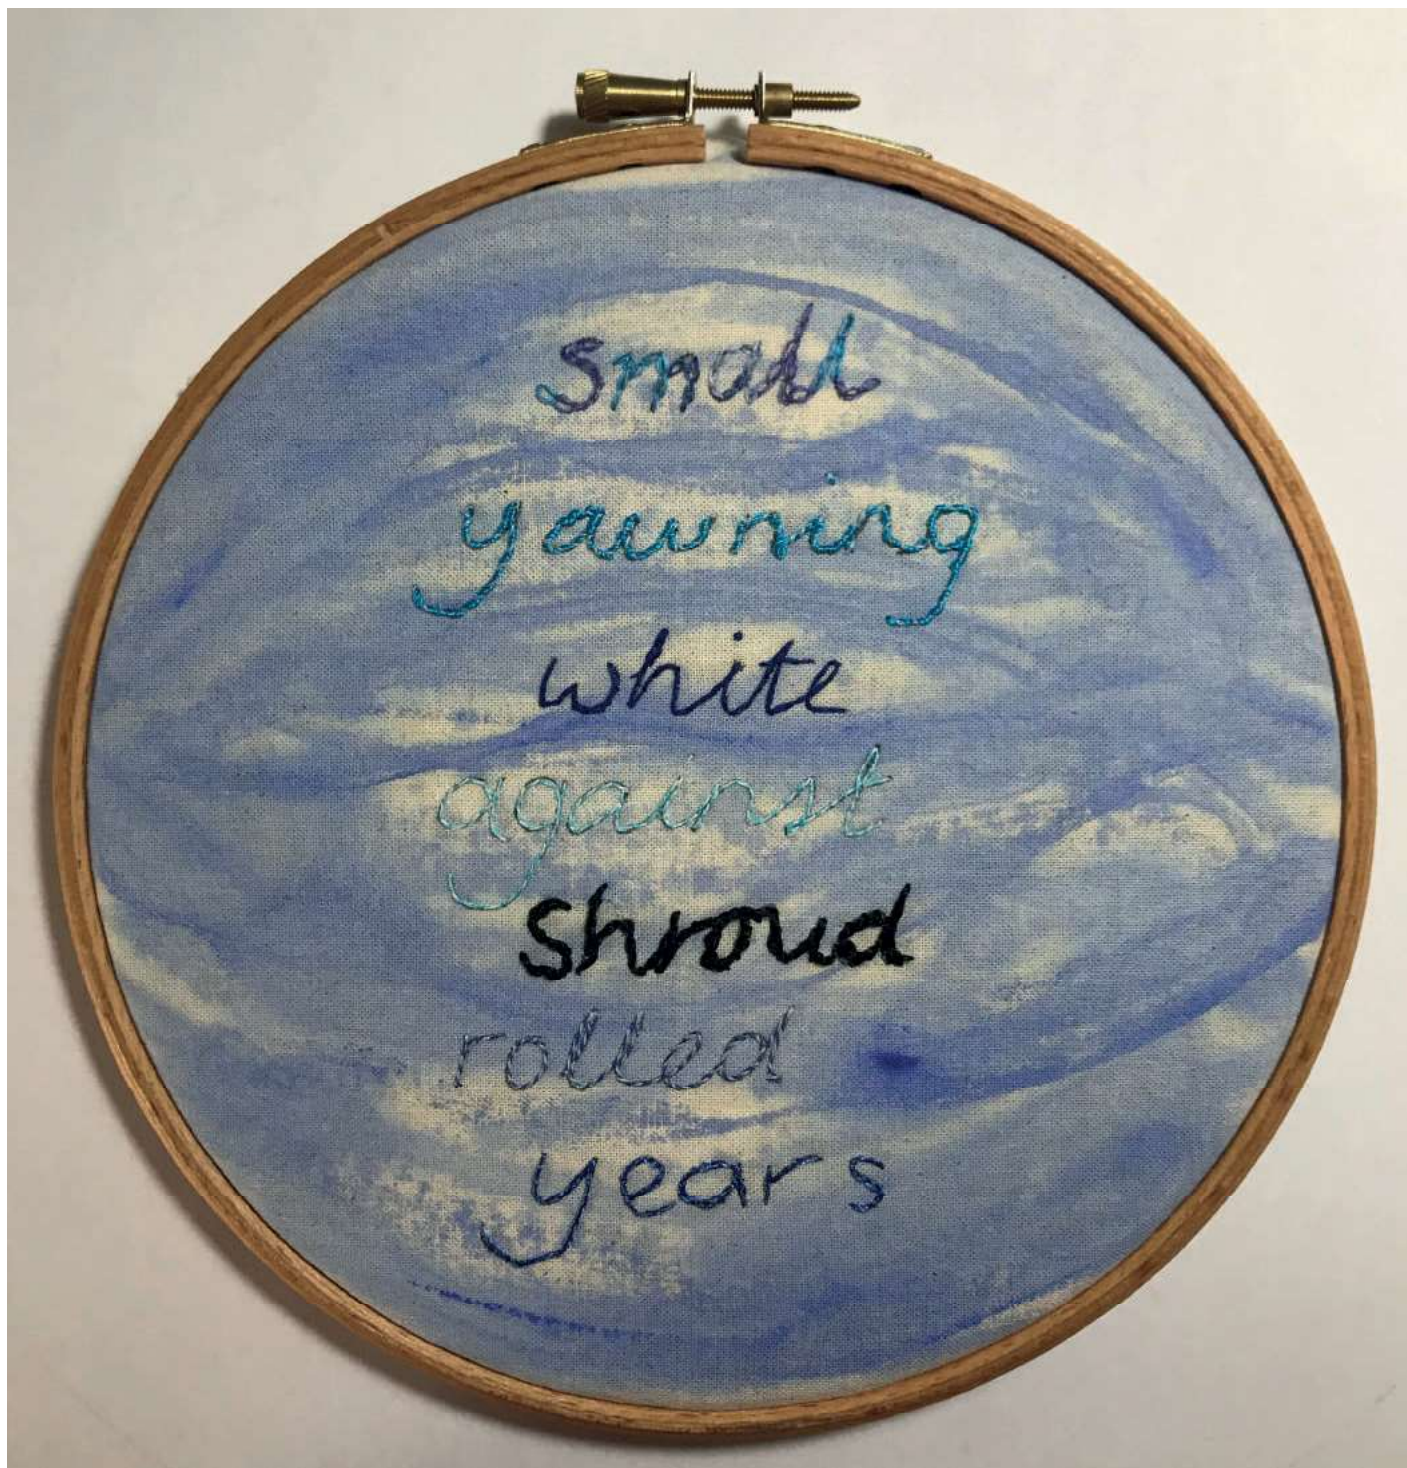 small
yawning
white
against
shroud
rolled
years